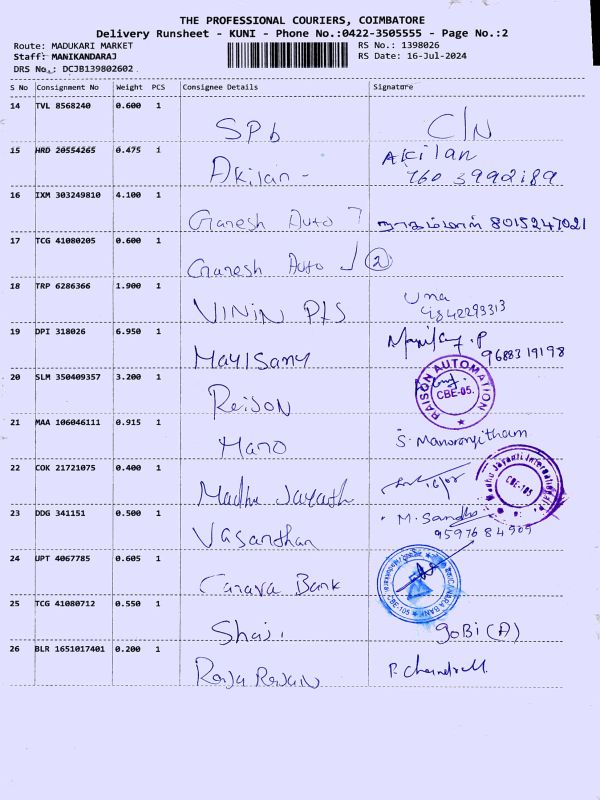 THE PROFESSIONAL COURIERS, COIMBATORE
Delivery Runsheet - KUNI - Phone No.:0422-3505555 - Page No.:2
Route: MADUKARI MARKET
RS No.: 1398026
Staff: MANIKANDARAJ
RS Date: 16-Jul-2024
DRS No.: DCJB139802602
S No Consignment No Weight PCS Consignee Details Signature
14 TVL 8568240 0.600 1
SPb C/N
15 HRD 20554265 0.475 1 Akilan
Akilan - 760 3992189
16 IXM 303249810 4.100 1
Ganesh Auto 8015247021
17 TCG 41080205 0.600 1
Ganesh Auto 2
18 TRP 6286366 1.900 1 Uma
VININ P/S 9842293313
19 DPI 318026 6.950 1
Mayisamy 9688319198
20 SLM 350409357 3.200 1 RAISON AUTOMATION
Reison CBE-05.
21 MAA 106046111 0.915 1
Mano S. Manoranjitham
22 COK 21721075 0.400 1 Madhu Jayanti International
Madhu Jayath CBE-105
23 DDG 341151 0.500 1 M. Sandho
Vasanthan 9597684909
24 UPT 4067785 0.605 1
Canara Bank CANARA BANK CBE-105
25 TCG 41080712 0.550 1
Shaji. GOBI (A)
26 BLR 1651017401 0.200 1
Raja Rajan